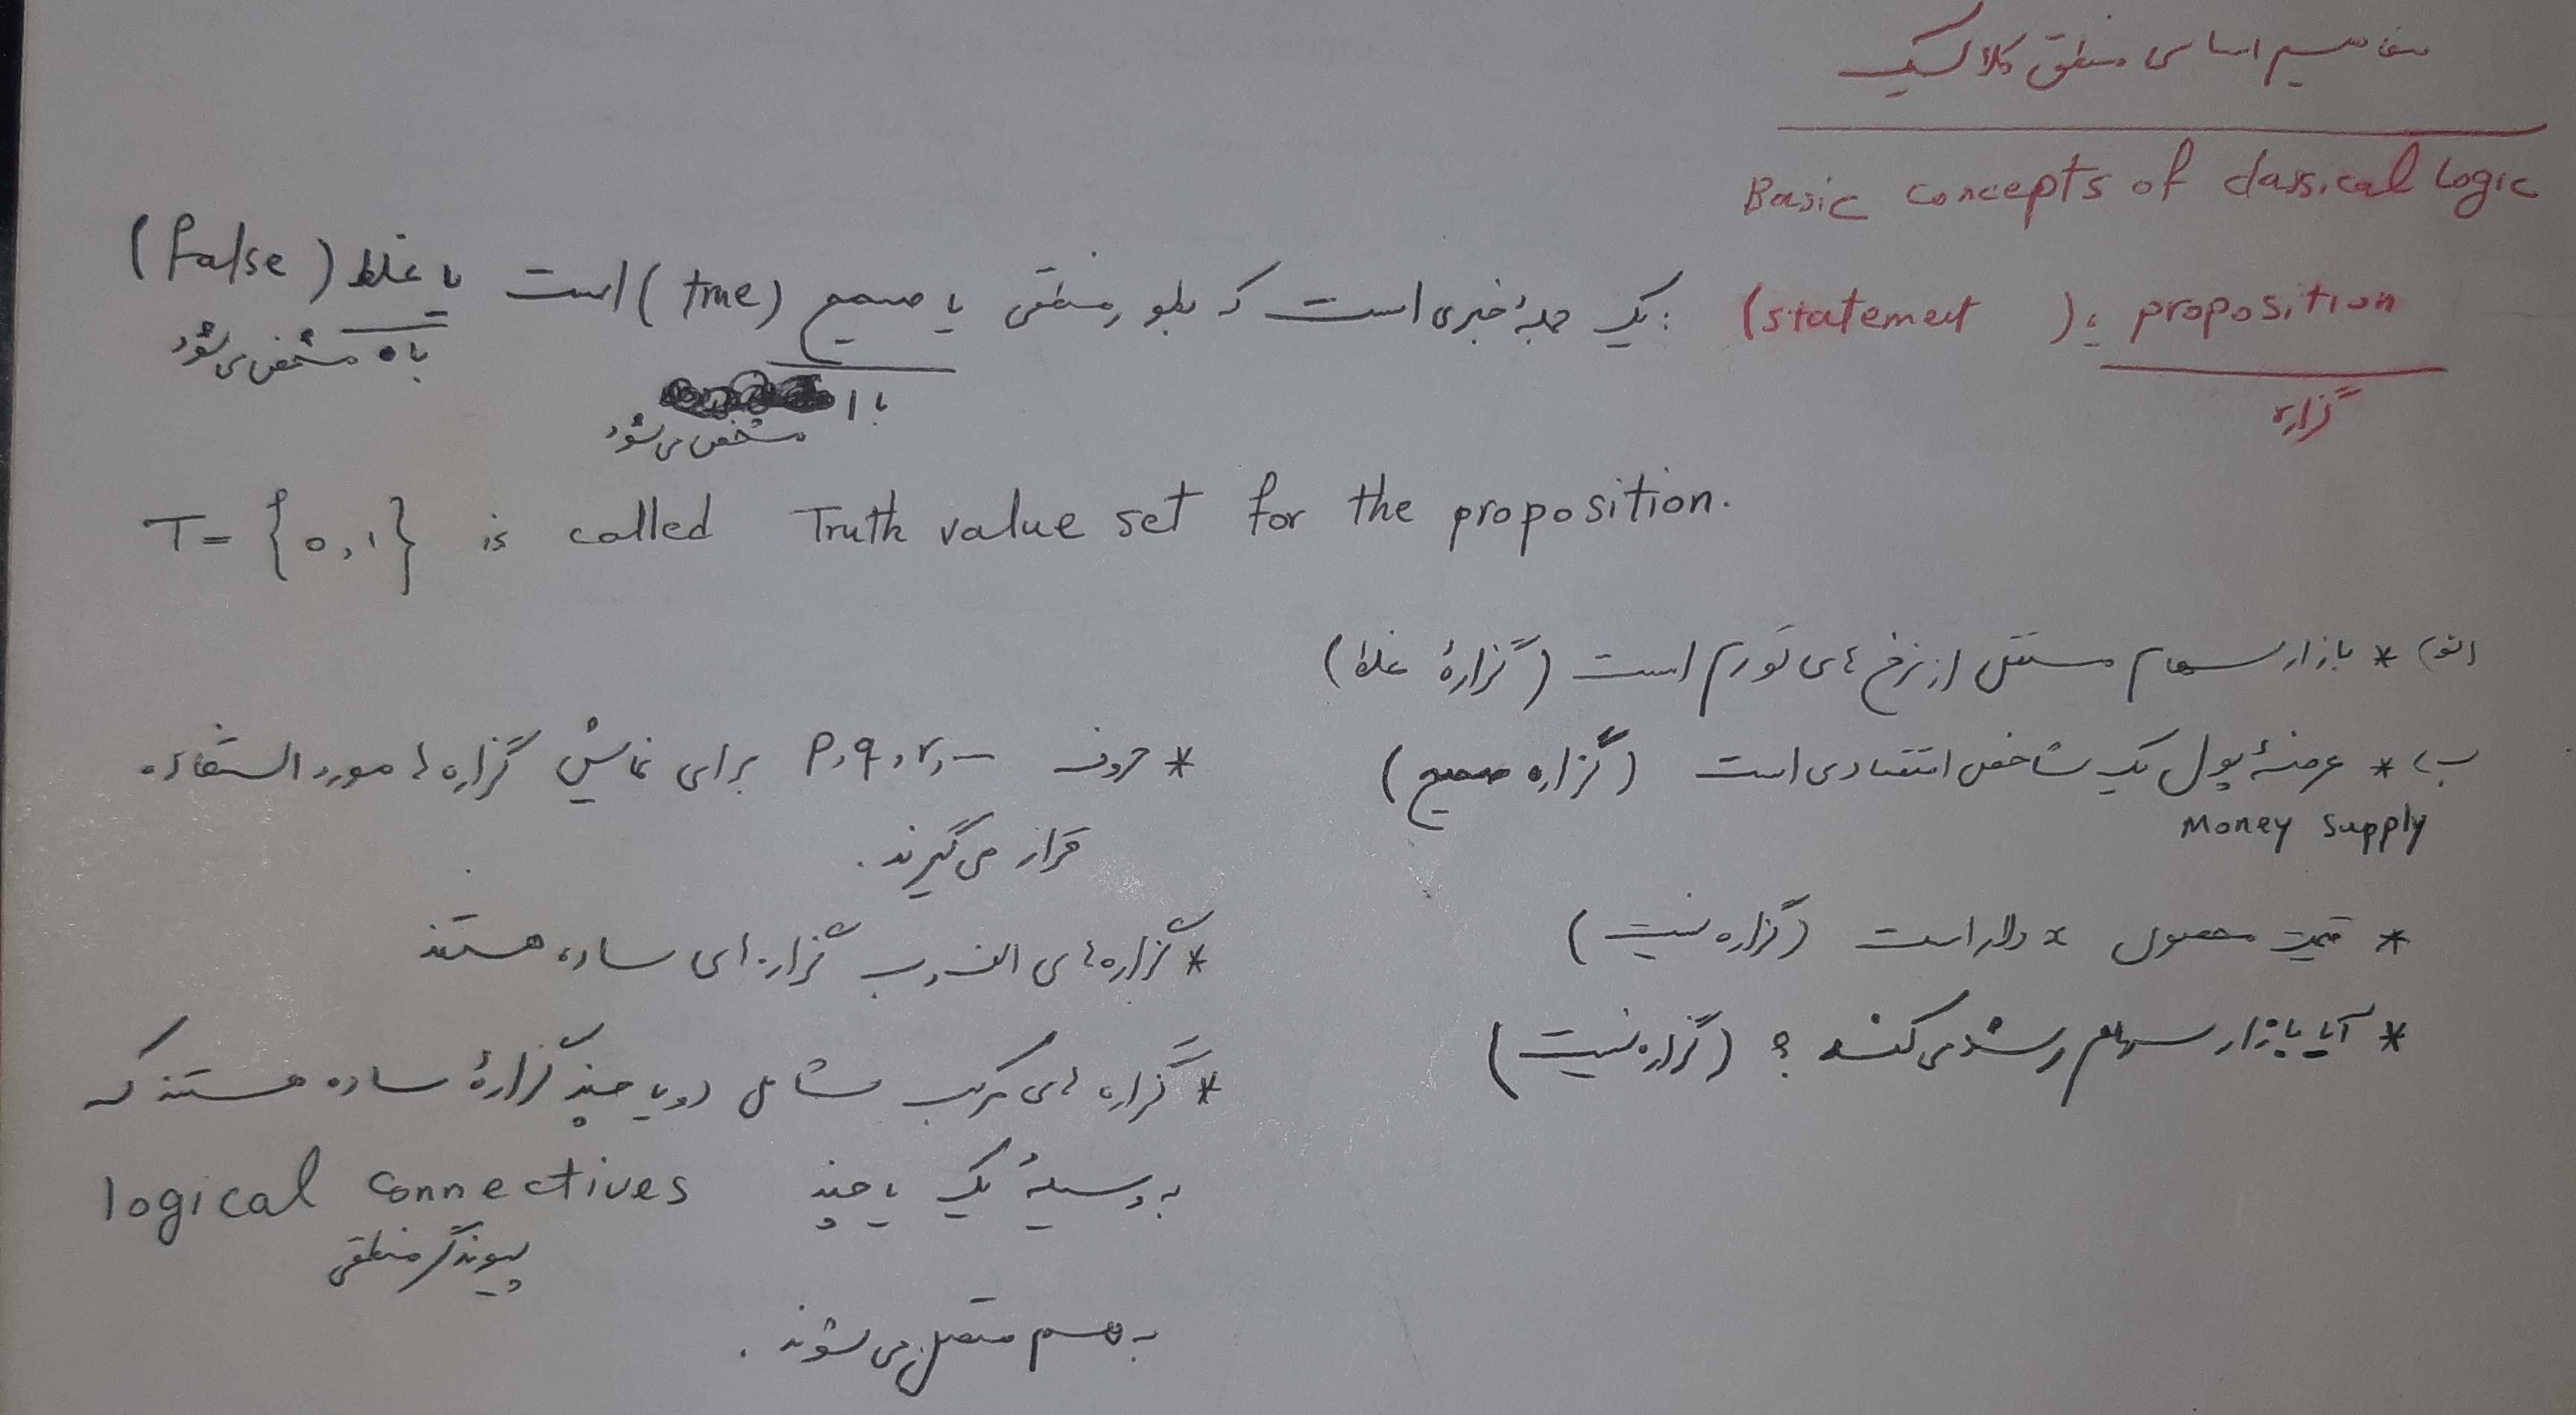 مفاهیم اساسی منطق کلاسیک
Basic concepts of classical Logic
proposition ؛ (statement) : یک جملهٔ خبری است که بطور منطقی یا صحیح (true) است یا غلط (false)
گزاره
با ۱ مشخص می‌شود
با ۰ مشخص می‌شود
T = {0,1} is called Truth value set for the proposition.
الف) * بازار سهام مستقل از نرخ های تورم است (گزارهٔ غلط)
ب) * عرضهٔ پول یک شاخص اقتصادی است (گزاره صحیح)
Money Supply
* قیمت محصول x دلار است (گزاره نیست)
* آیا بازار سهام رشد می‌کند ؟ (گزاره نیست)
* حروف p,q,r,... برای نمایش گزاره ها مورد استفاده
قرار می‌گیرند .
* گزاره‌های الف و ب گزاره‌های ساده هستند
* گزاره های مرکب شامل دو یا چند گزارهٔ ساده هستند که
به وسیلهٔ یک یا چند logical connectives
پیوندگر منطقی
به هم متصل می‌شوند .